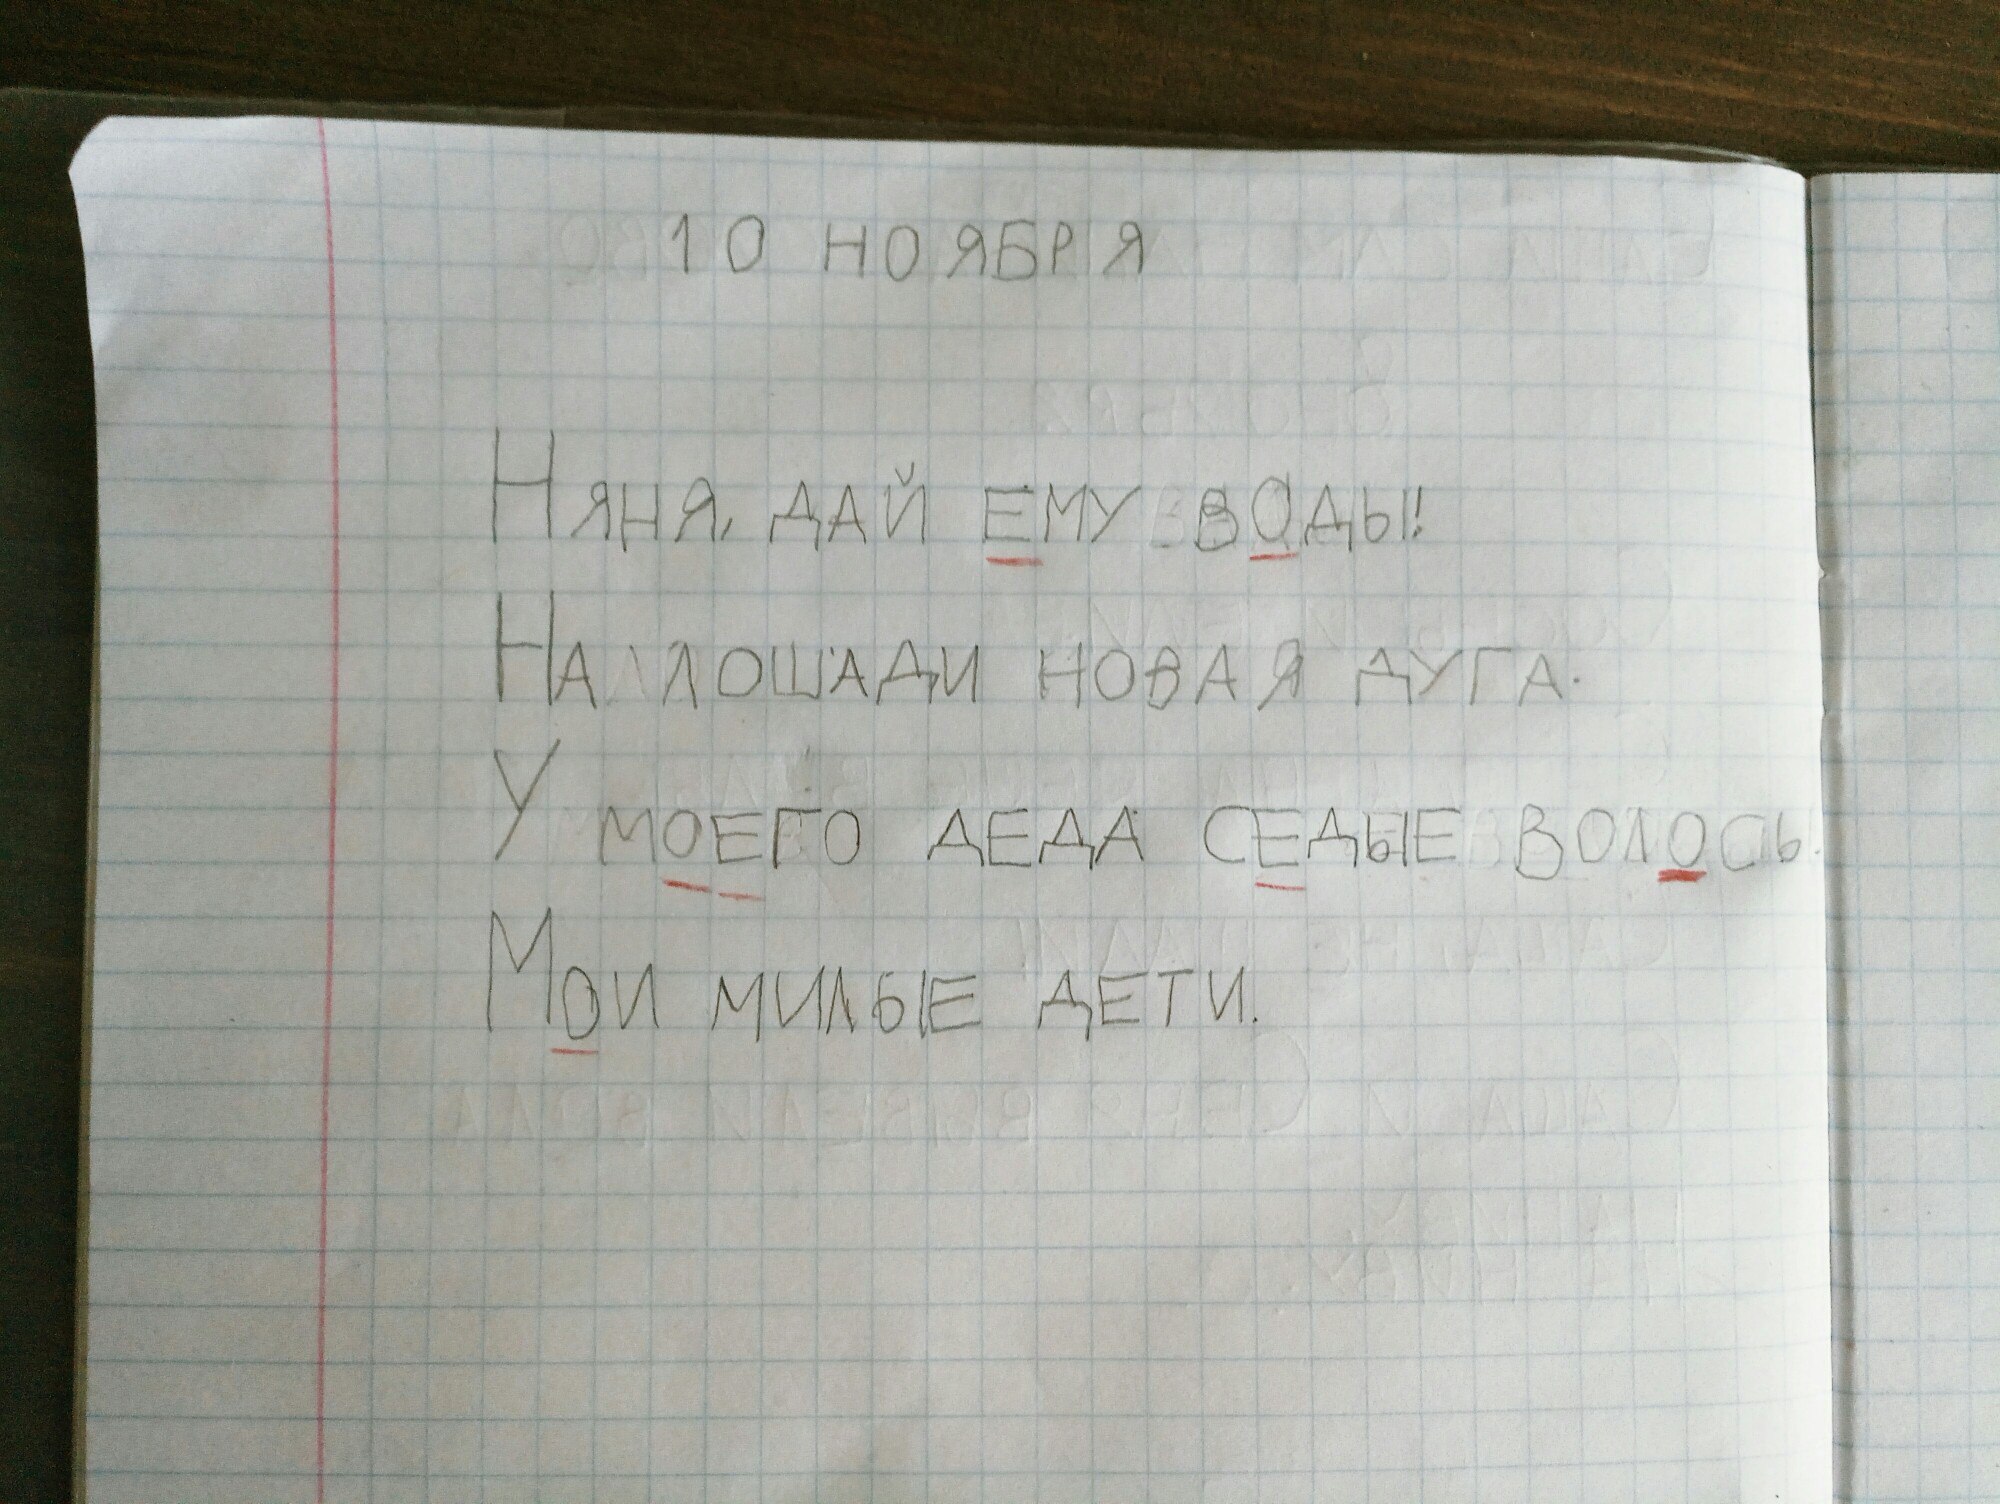 10 НОЯБРЯ
Няня, дай ему воды!
На лошади новая дуга.
У моего деда седые волосы.
Мои милые дети.